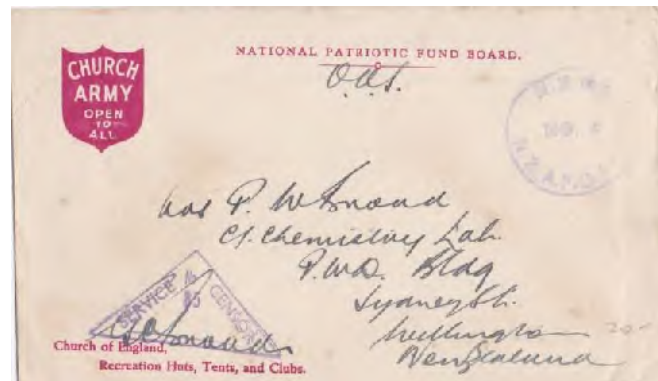 CHURCH
ARMY
OPEN
TO
ALL
NATIONAL PATRIOTIC FUND BOARD.
O.A.S.
N.Z.A.P.O.
P. W
C/. Chemistry Lab.
P.W.D. Bldg
Sydney St.
Wellington
New Zealand
20-
SERVICE
CENSOR
Church of England,
Recreation Huts, Tents, and Clubs.